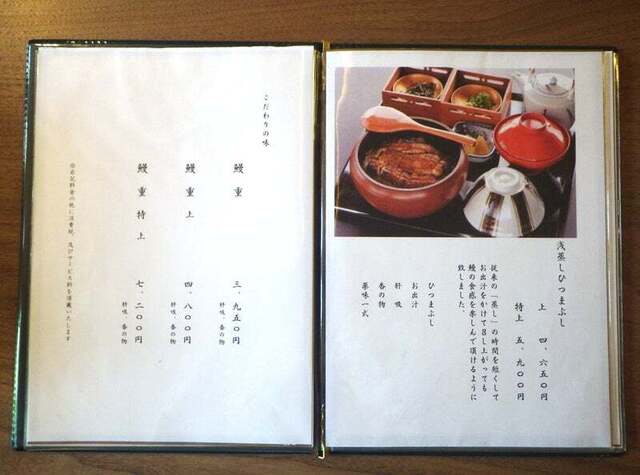 浅蒸しひつまぶし
上　四、六五〇円
特上　五、九〇〇円
従来の「蒸し」の時間を短くして
お出汁をかけて召し上がっても
鰻の食感を楽しんで頂けるように
致しました。
ひつまぶし
お出汁
肝吸
香の物
薬味一式
こだわりの味
鰻重　三、九五〇円
肝吸、香の物
鰻重上　四、八〇〇円
肝吸、香の物
鰻重特上　七、二〇〇円
肝吸、香の物
※右記料金の他に消費税、及びサービス料を頂戴いたします